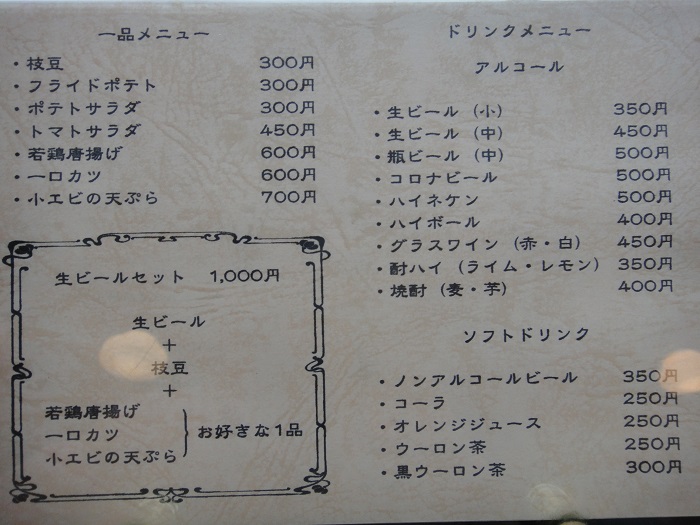 一品メニュー
・枝豆 300円
・フライドポテト 300円
・ポテトサラダ 300円
・トマトサラダ 450円
・若鶏唐揚げ 600円
・一口カツ 600円
・小エビの天ぷら 700円
生ビールセット 1,000円
生ビール
+
枝豆
+
若鶏唐揚げ
一口カツ
小エビの天ぷら
お好きな1品
ドリンクメニュー
アルコール
・生ビール (小) 350円
・生ビール (中) 450円
・瓶ビール (中) 500円
・コロナビール 500円
・ハイネケン 500円
・ハイボール 400円
・グラスワイン (赤・白) 450円
・酎ハイ (ライム・レモン) 350円
・焼酎 (麦・芋) 400円
ソフトドリンク
・ノンアルコールビール 350円
・コーラ 250円
・オレンジジュース 250円
・ウーロン茶 250円
・黒ウーロン茶 300円